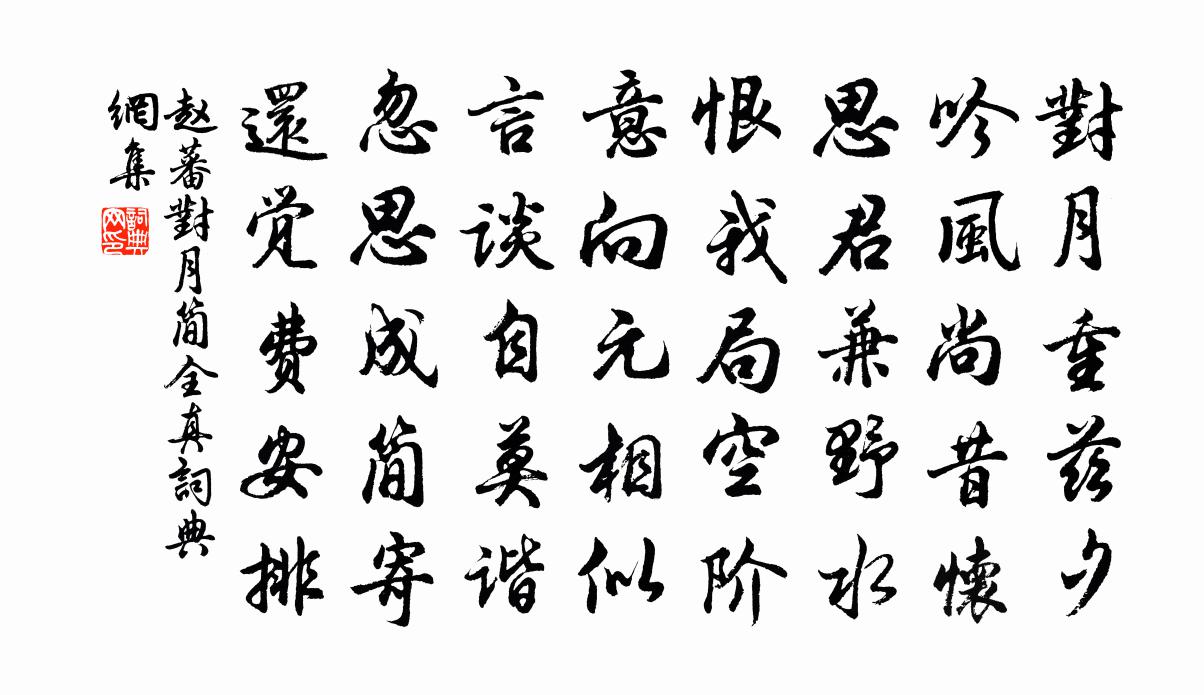 對月重茲夕
吟風尚昔懷
思君兼野水
恨我局空阶
意向元相似
言谈自莫谐
忽思成简寄
還觉费安排
赵蕃對月简全真詞典
網集
詞典
网印